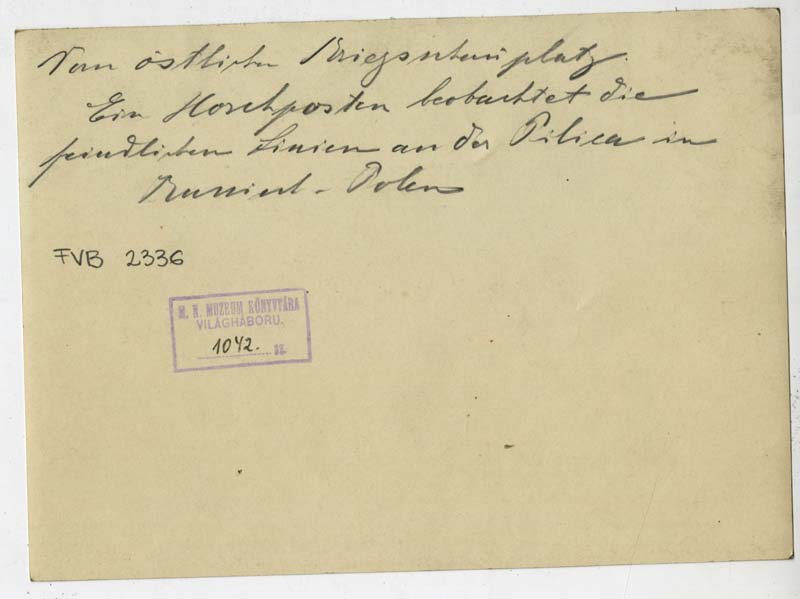 Vom östlichen Kriegsschauplatz.
Ein Horchposten beobachtet die
feindlichen Linien an der Pilica in
Russisch-Polen
FVB 2336
M. N. MUZEUM KÖNYVTÁRA
VILÁGHÁBORU.
1042. SZ.